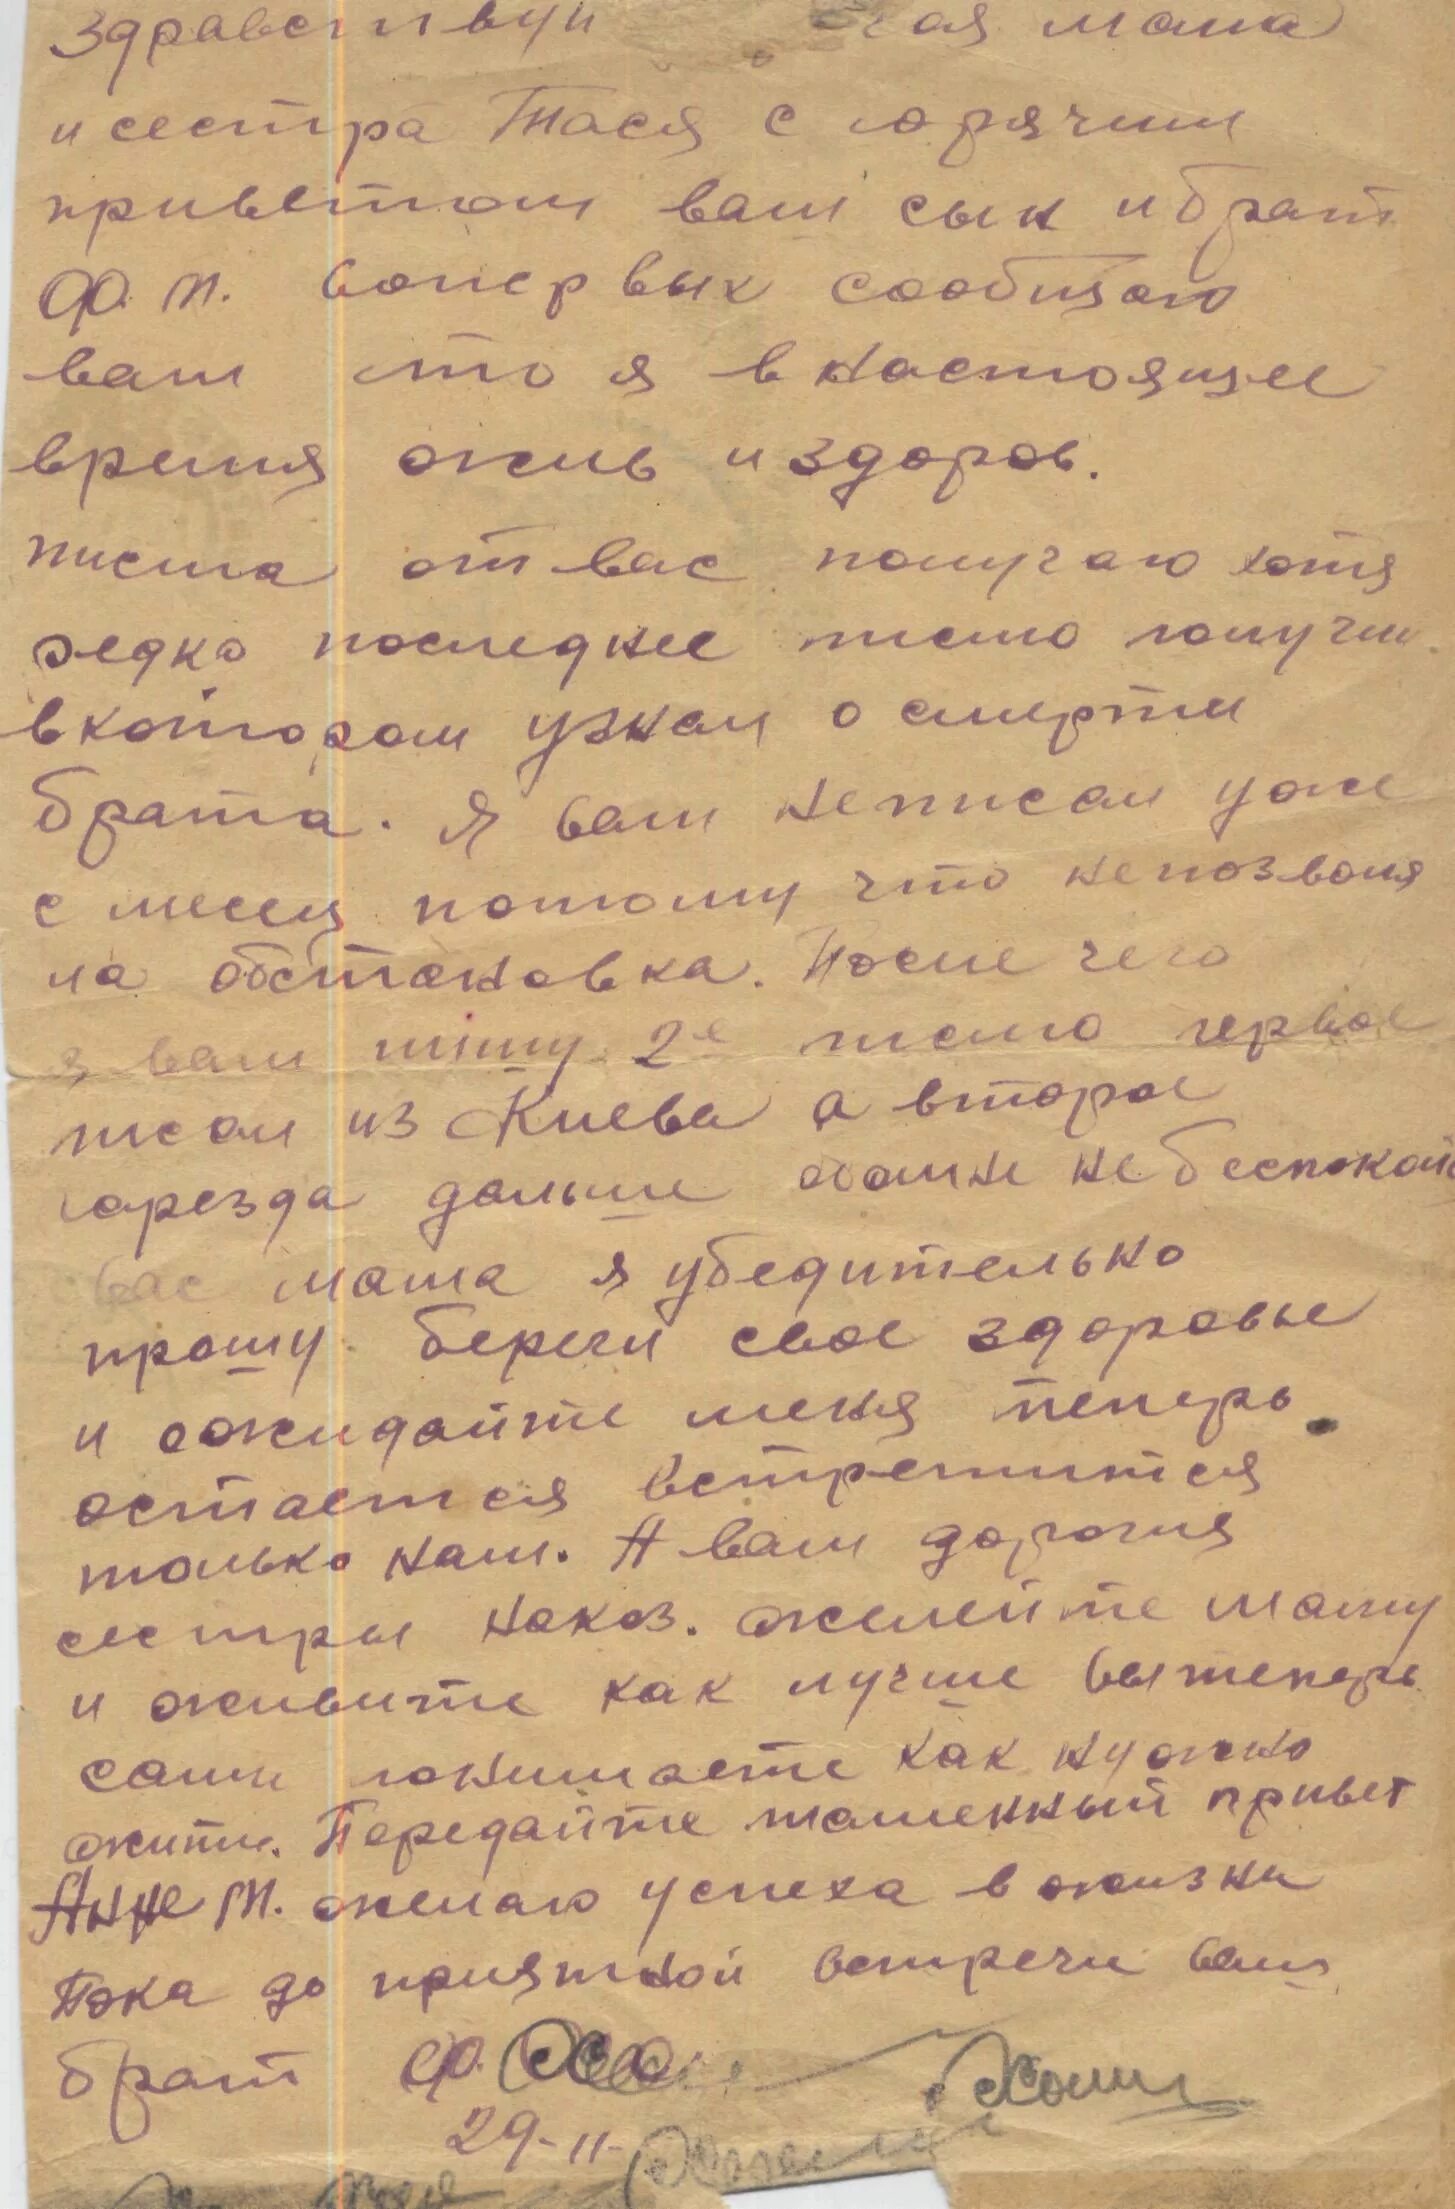 Здравствуй мама
и сестра Тася с горячим
приветом ваш сын и брат
Ф. П. вопервых сообщаю
вам что я в настоящее
время жив и здоров.
писма от вас получаю хотя
редко последнее писмо получил
в котором узнал о смерти
брата. Я вам не писал уже
с месец потому что не позволя
ла обстановка. После чего
я вам пишу 2е писмо первое
писал из Киева а второе
дальше не беспокой
вас мама я убедительно
прошу береги свое здоровье
и ожидайте меня теперь
остается встретится
только нам. А вам дорогия
сестры наказ. жалейте маму
и живите как лучше вы теперь
сами понимаете как нужно
жить. Передайте пламенный привет
Анне М. желаю успеха в жизни
Пока до приятной встречи ваш
брат Ф.
29-11-